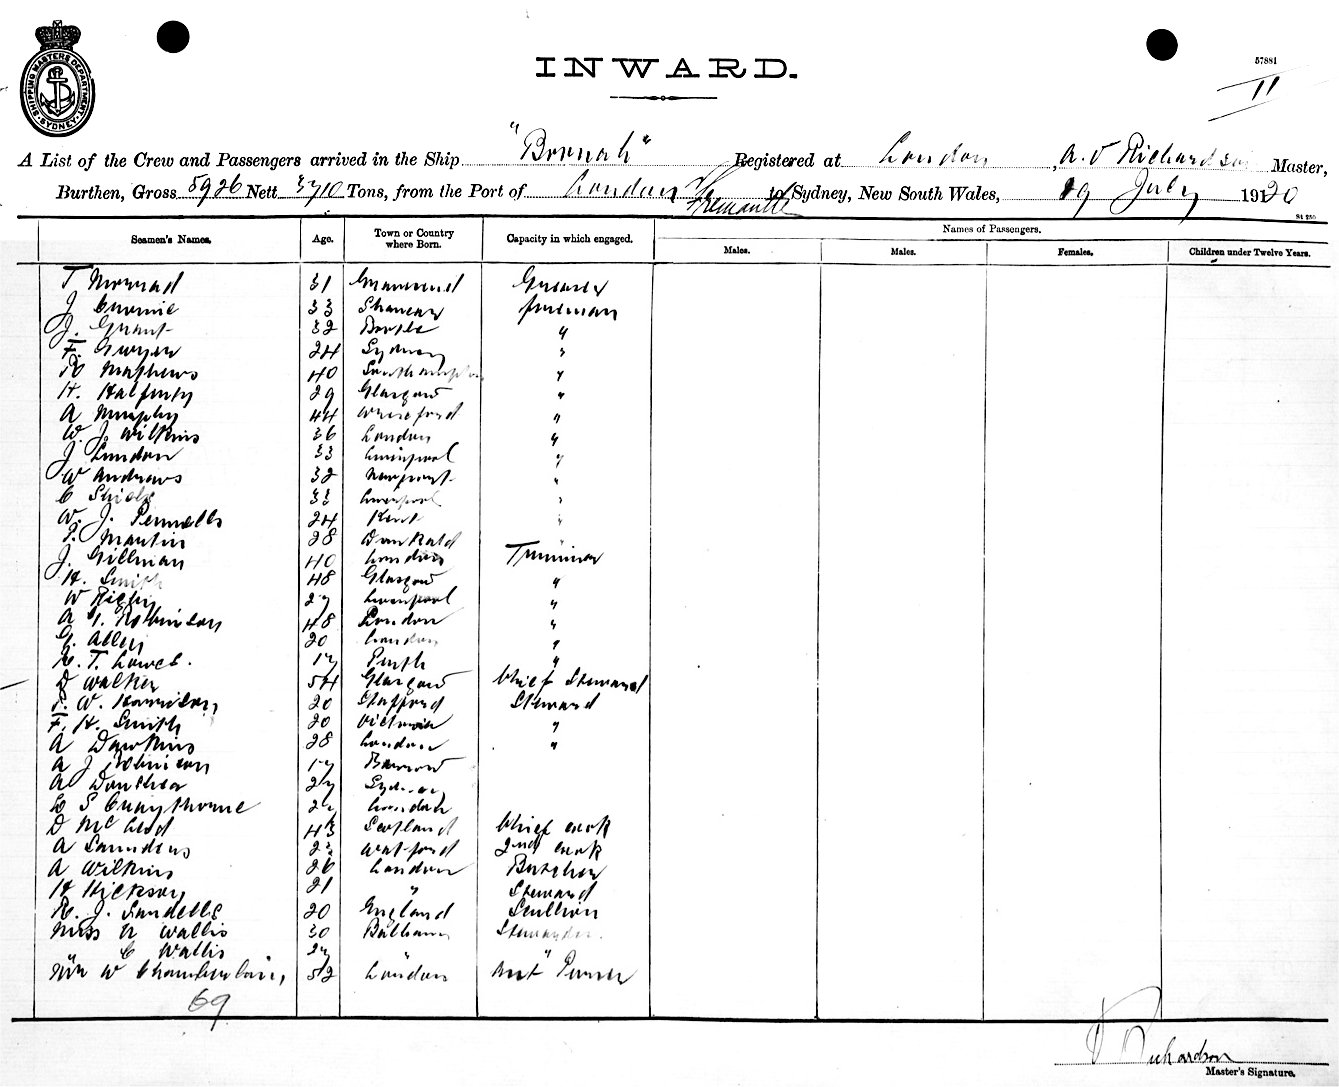 SHIPPING MASTERS DEPARTMENT. SYDNEY.
INWARD.
57881
11
A List of the Crew and Passengers arrived in the Ship "Boonah" Registered at London, A. V Richardson Master,
Burthen, Gross 5926 Nett 3710 Tons, from the Port of London Via Fremantle to Sydney, New South Wales, 29 July 1920
St 250
Seamen's Names. Age. Town or Country where Born. Capacity in which engaged. Names of Passengers.
Males. Males. Females. Children under Twelve Years.
T 31 Gravesend Greaser
J 33 Fireman
J. Grant 32 Bootle "
F. Gwyer 24 Sydney "
R Mathews 40 Southampton "
H. Halfpenny 29 Glasgow "
A Murphy 44 Wexford "
W. J. Wilkins 36 London "
J London 33 Liverpool "
W Andrews 32 Newport "
C Shiels 33 Liverpool "
W. J. Pennells 24 Kent "
P. Martin 28 "
J. Gillman 40 London Trimmer
H. Smith 48 Glasgow "
W Rigby 27 Liverpool "
A G. Robinson 48 London "
G. Allen 20 London "
T. Lowes. 17 Perth "
D Walker 54 Glasgow Chief Steward
W. Harrison 20 Stafford Steward
F. H. Smith 20 Victoria "
A Dawkins 28 London "
A J Robinson 17 Barrow
A 27 Sydney
S Craythorne London
D McLeod 43 Scotland Chief Cook
A Saunders 23 Watford 2nd Cook
A Wilkins 26 London Butcher
H Hickson 21 " Steward
R. J. Sandells 20 England Scullion
Miss N Wallis 30 Balham Stewardess.
" C Wallis 27 " "
Mr W Chamberlain, 52 London Asst Purser
69
V Richardson
Master's Signature.